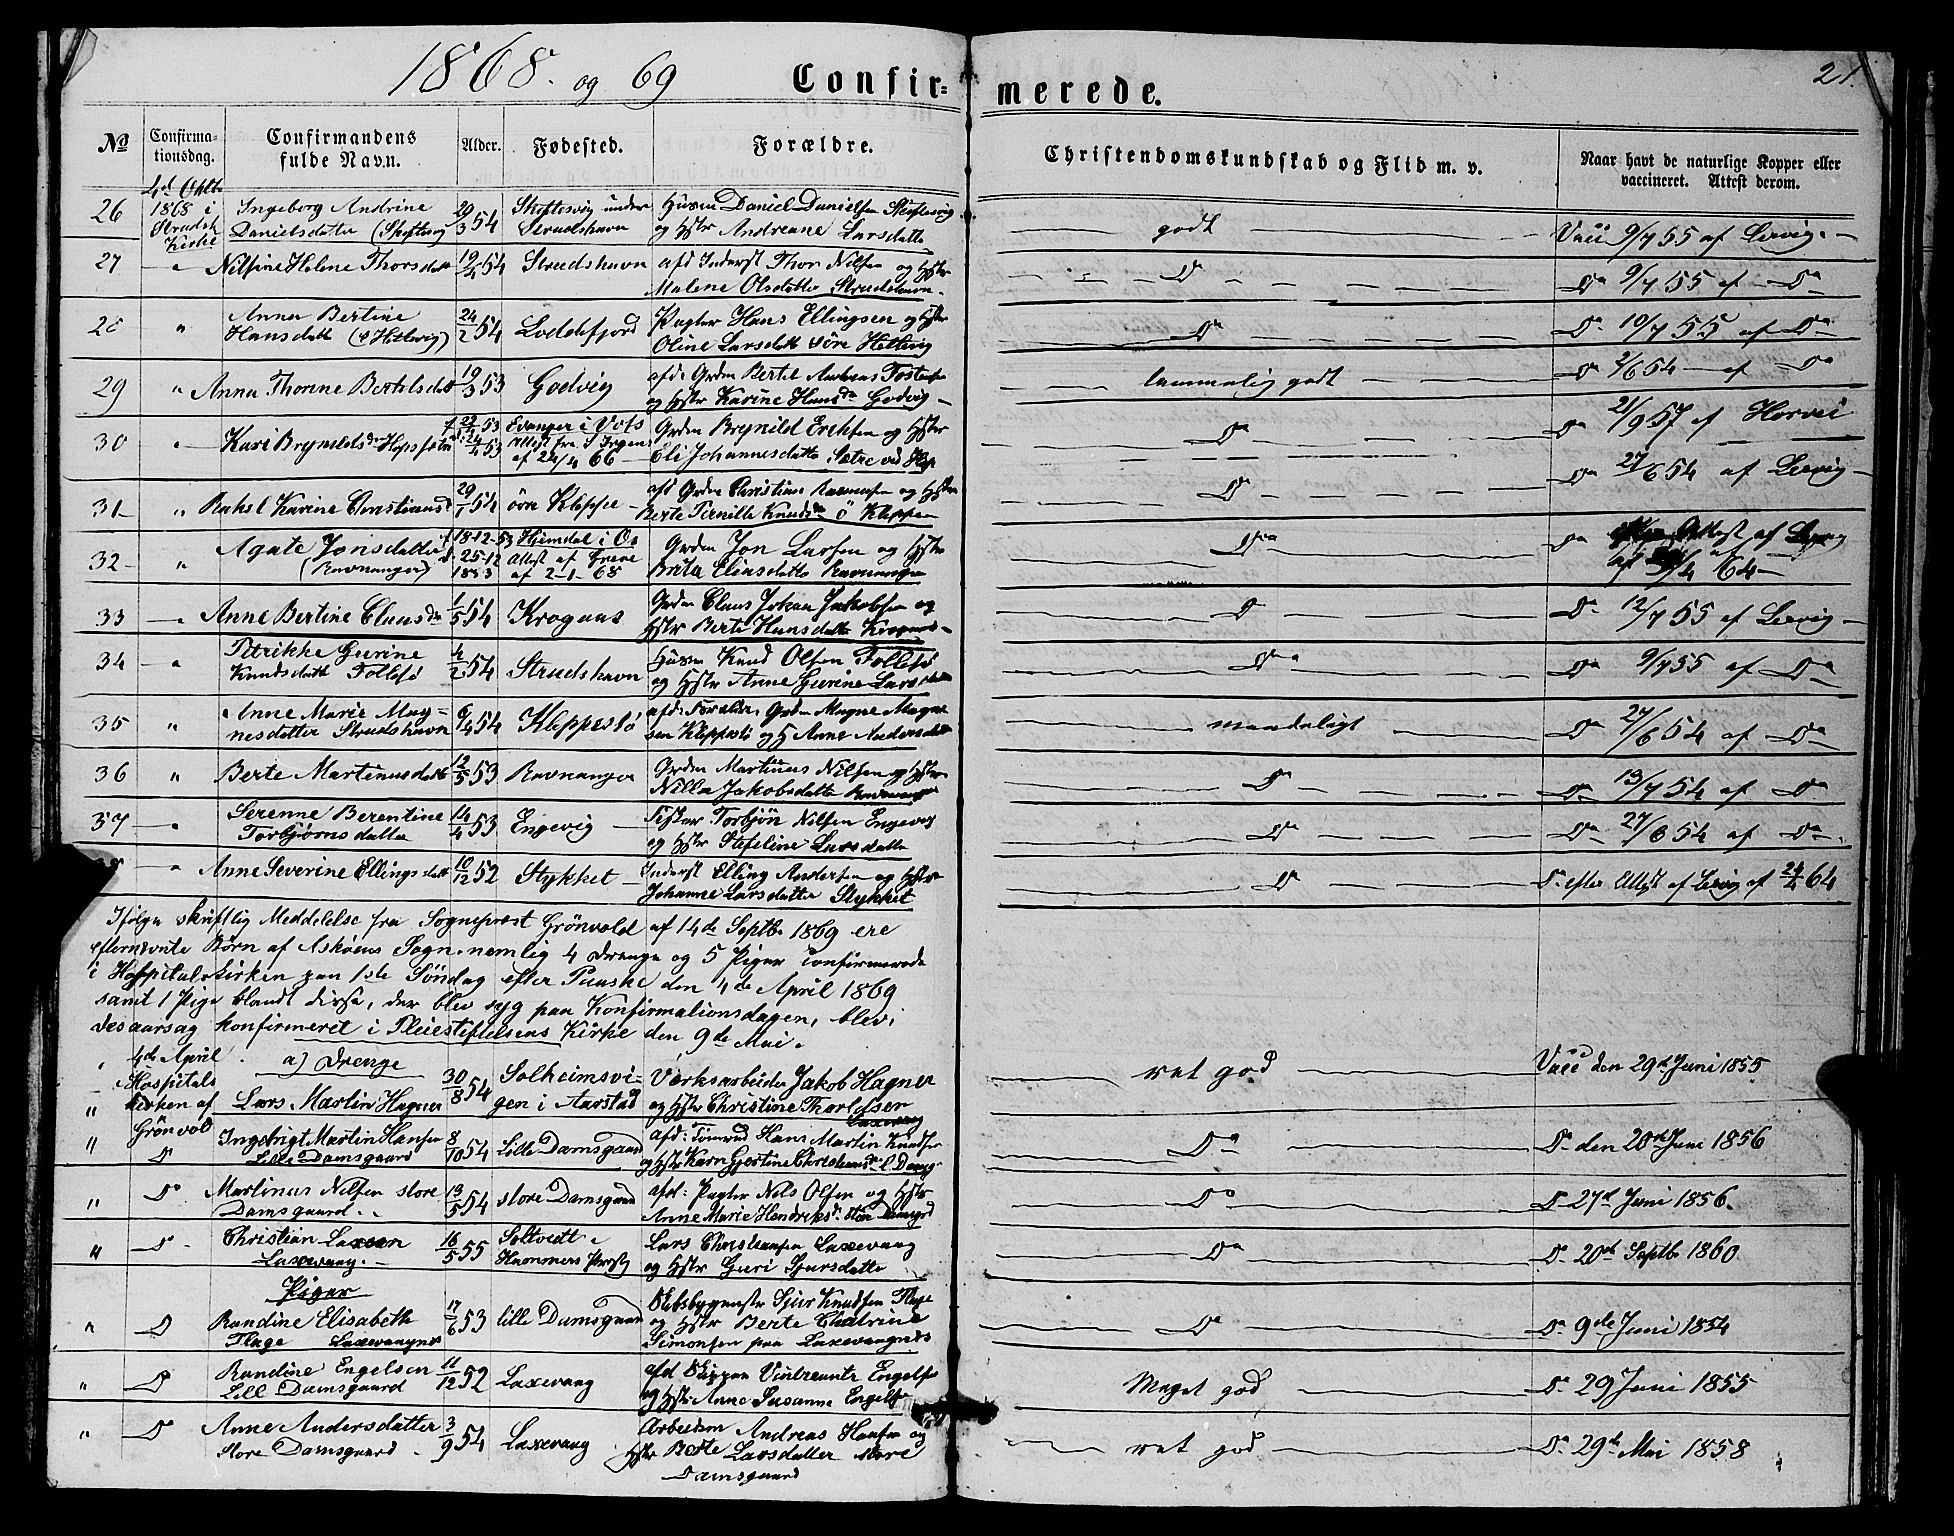 1868. og 69
Confir=
merede.
21.
No
Confirma-
tionsdag.
Confirmandens
fulde Navn.
Alder.
Fødested.
Forældre.
Christendomskundskab og Flid m. v.
Naar havt de naturlige Kopper eller
vaccineret. Attest derom.
4de Oktb
1868 i
Strudsh
Kirke
26
Ingeborg Andrine
Danielsdatter (Skiftesvig
29/3 54
Skiftesvig under
Strudshavn
Husm Daniel Danielsen Skiftesvig
og Hstr Andreane Larsdatter
godt
Vacc 9/7 55 af Lervig
27
Nilsine Helene Thorsdatt
19/4 54
Strudshavn
afd Inderst Thor Nilsen og Hstr
Malene Olsdatter Strudshavn
Do
Do 9/7 55 af Do
28
Anna Bertine
Hansdatt
24/2 54
Loddefjord
Pagter Hans Ellingsen og Hstr
Oline Larsdatt
Do
Do 10/7 55 af Do
29
Anna Thorine Bertelsdatt
19/3 53
Godvig
afd: Grdm Bertel Andreas Tostensen
og Hstr Karine Hansdr Godvig
temmelig godt
Do 2/6 54 af Do
30
Kari Brynildsdr
f 22/4 53
d 24/4 53
Evanger i Vos
Attest fra
af 24/4 66
Grdm Brynild Eriksen og Hstr
Eli Johannesdatter Sætre ved
Do
Do 21/9 57 af
31
Rakel Karine Christiansd
29/1 54
øvre Kleppe
afd Grdm Christian Rasmusen og Hstr
Berte Pernille Knudsdr Ø Kleppen
Do
Do 27/6 54 af Lervig
32
Agate Jonsdatter
(Ravnanger)
f 18-12-53
d. 25-12
1853
Hjimdal i Os
Attest af
af 2-1-68
Grdm Jon Larsen og Hstr
Brita Eliasdatter Ravnanger
Do
Do Attest af Lervig
64
33
Anne Bertine Clausdr
1/5 54
Krogaas
Grdm Claus Johan Jakobsen og
Hstr Berte Hansdatter Krogaas
Do
Do 12/7 55 af Lervig
34
Petrikke Gurine
Knudsdatt Follesø
4/2 54
Strudshavn
Husm Knud Olsen Follesø
og Hstr Anne Gurine Larsdatter
Do
Do 9/7 55 af Do
35
Anne Marie Mag-
nesdatter Strudshavn
6/4 54
Kleppestø
afd: Forældre, Grdm Magne Magne
sen Kleppestø og H Anne Andersdatter
maadeligt
Do 27/6 54 af Do
36
Berte Martinusdatt
12/5 53
Ravnanger
Grdm Martinus Nilsen og Hstr
Nilla Jakobsdatter Ravnanger
Do
Do 13/7 54 af Do
37
Serenne Berentine
Torbjørnsdatter
14/4 53
Engevig
Fisker Torbjørn Nilsen Engevig
og Hstr Stefeline Larsdatter
Do
Do 27/6 54 af Do
38
Anne Severine Ellingsdatt
10/12 52
Stykket
Inderst Elling Andersen og Hstr
Johanne Larsdatter Stykket
Do
Do efter Attest af Lervig af 24/4 64
Ifølge skriftlig Meddelelse fra Sognepræst Grönvold af 14de Septb 1869 ere
efternævnte Børn af Askøens Sogn nemlig 4 Drenge og 5 Piger Confirmerede
i Hospitalskirken paa 1ste Søndag efter Paaske den 4de April 1869
samt 1 Pige blandt disse, der blev syg paa Konfirmationsdagen, blev,
desaarsag konfirmeret i Pleiestiftelsens Kirke den 9de Mai.
4de April
Hospitals
kirken af
Grönvold
a) Drenge
Lars Martin Hagner
30/8 54
Solheimsvi-
gen i Aarstad
Værksarbeider Jakob Hagner
og Hstr Christine Tharldsen
Laxevaag
ret god
Vacc den 29de Juni 1855
" Do
Ingebrigt Martin Hansen
Lille Damsgaard
8/10 54
Lille Damsgaard
afd: Tømmd Hans Martin Knudsen
og Hstr Karn Gjertine Christiansdr L Damsg
Do
Do den 20de Juni 1856
" Do
Martinus Nilsen store
Damsgaard
13/5 54
store Damsgaard
afd: Pagter Nils Olsen og Hstr
Anne Marie Hendriksdr store Damsgrd
Do
Do 27de Juni 1856.
" Do
Christian Larsen
Laxevaag
16/5 55
Soltvedt
Hammers Prstg
Lars Christiansen Laxevaag
og Hstr Guri Sjursdatter
Do
Do 20de Septb 1860
Piger
" Do
Randine Elisabeth
Flage Laxevaagnes
17/6 53
lille Damsgaard
Skibsbygmstr Sjur Knudsen Flage
og Hstr Berte Chatrine
Simonsen paa Laxevaagnes
Do
Do 9de Juni 1854
" Do
Randine Engelsen
Lill Damsgaard
11/12 52
Laxevaag
afd Skipper Vintreante Engelsen
og Hstr Anne Susanne Engelsen
Meget god
Do 29 Juni 1855
" Do
Anne Andersdatter
store Damsgaard
3/9 54
Laxevaag
Arbeidsm Andreas Hansen og
Hstr Berte Larsdatter store
Damsgaard
ret god
Do 29de Mai 1858